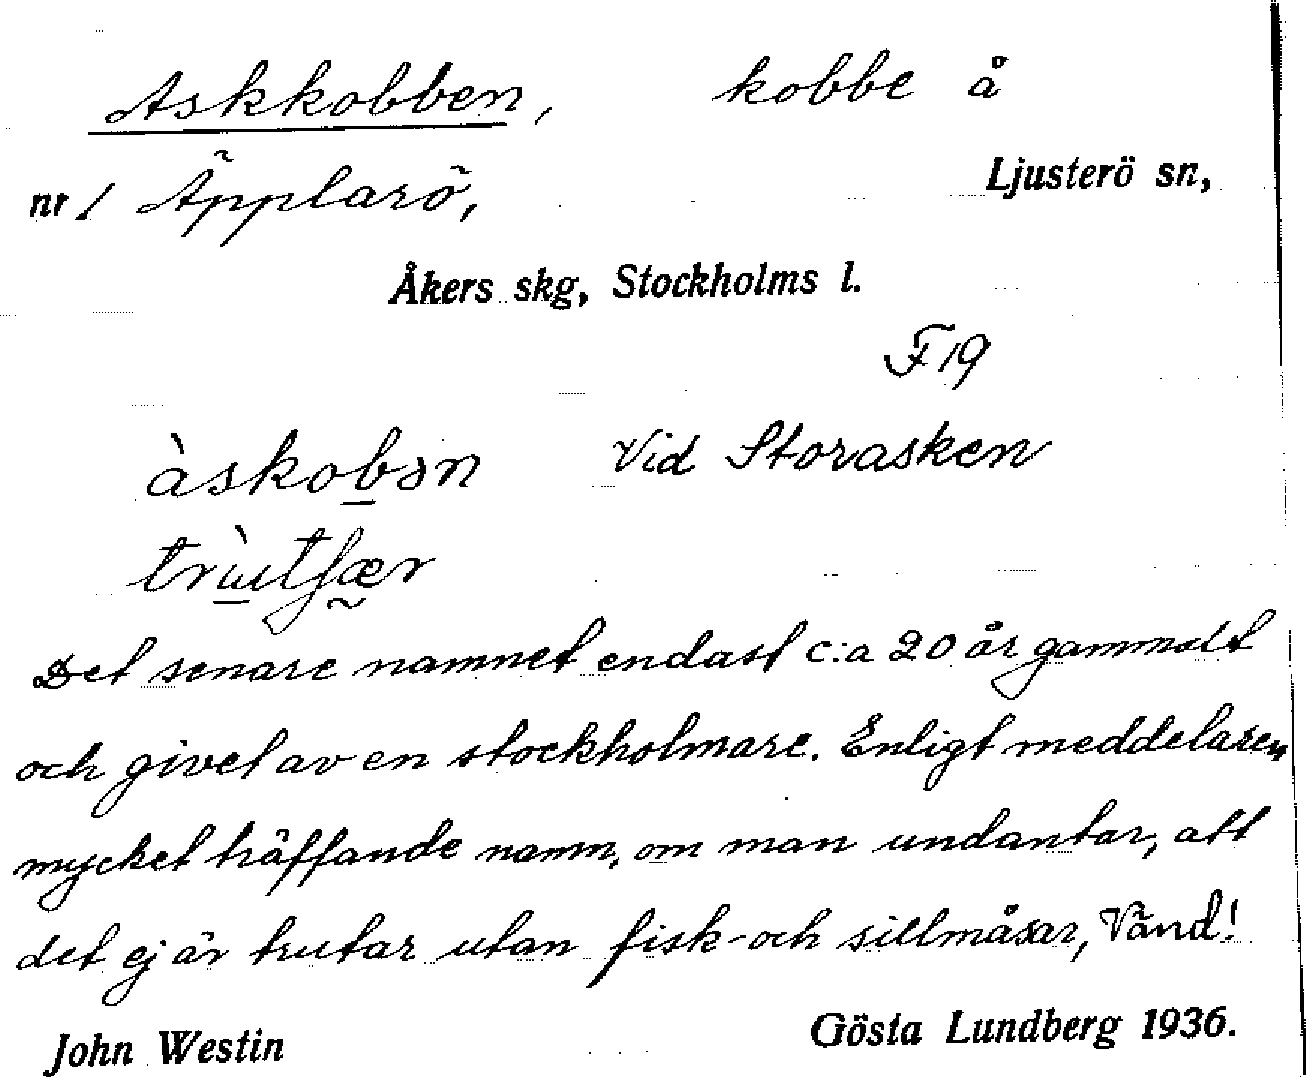 Askkobben, kobbe å
nr 1 Äpplarö, Ljusterö sn,
Åkers skg, Stockholms l.
F 19
àskobən Vid Storasken
trùtʃær
Det senare namnet endast c:a 20 år gammalt
och givet av en stockholmare. Enligt meddelaren
mycket träffande namn, om man undantar, att
det ej är trutar utan fisk- och sillmåsar, Vänd!
John Westin Gösta Lundberg 1936.